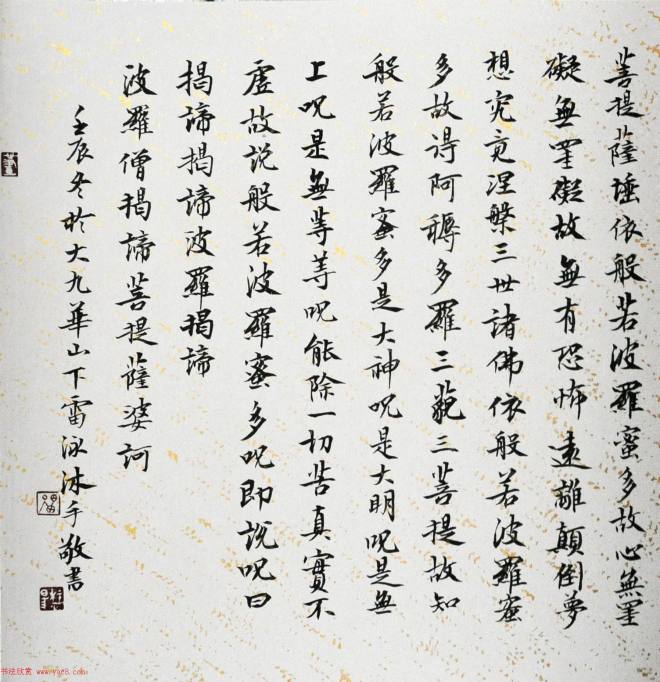 菩提薩埵依般若波羅蜜多故心無罣
礙無罣礙故無有恐怖遠離顛倒夢
想究竟涅槃三世諸佛依般若波羅蜜
多故得阿耨多羅三藐三菩提故知
般若波羅蜜多是大神咒是大明咒是無
上咒是無等等咒能除一切苦真實不
虛故說般若波羅蜜多咒即說咒曰
揭諦揭諦波羅揭諦
波羅僧揭諦菩提薩婆訶
壬辰冬於大九華山下雷泳沐手敬書
书法欣赏 www.yac8.com